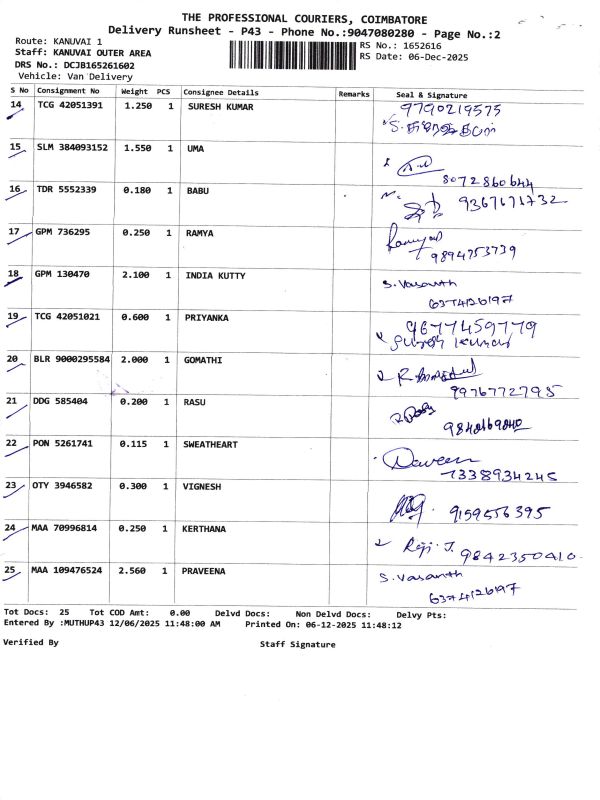 THE PROFESSIONAL COURIERS, COIMBATORE
Delivery Runsheet - P43 - Phone No.:9047080280 - Page No.:2
Route: KANUVAI 1
RS No.: 1652616
Staff: KANUVAI OUTER AREA
RS Date: 06-Dec-2025
DRS No.: DCJB165261602
Vehicle: Van Delivery
S No Consignment No Weight PCS Consignee Details Remarks Seal & Signature
14 TCG 42051391 1.250 1 SURESH KUMAR 9790219575
15 SLM 384093152 1.550 1 UMA
8072860644
16 TDR 5552339 0.180 1 BABU 9367671732
17 GPM 736295 0.250 1 RAMYA
9894753739
18 GPM 130470 2.100 1 INDIA KUTTY S. Vasanth
6374126197
19 TCG 42051021 0.600 1 PRIYANKA 9677459779
Suresh Kumar
20 BLR 9000295584 2.000 1 GOMATHI
9976772795
21 DDG 585404 0.200 1 RASU
22 PON 5261741 0.115 1 SWEATHEART
7338934245
23 OTY 3946582 0.300 1 VIGNESH 9159556395
24 MAA 70996814 0.250 1 KERTHANA Reji. J. 9842350410
25 MAA 109476524 2.560 1 PRAVEENA S. Vasanth
6374126197
Tot Docs: 25 Tot COD Amt: 0.00 Delvd Docs: Non Delvd Docs: Delvy Pts:
Entered By :MUTHUP43 12/06/2025 11:48:00 AM Printed On: 06-12-2025 11:48:12
Verified By Staff Signature